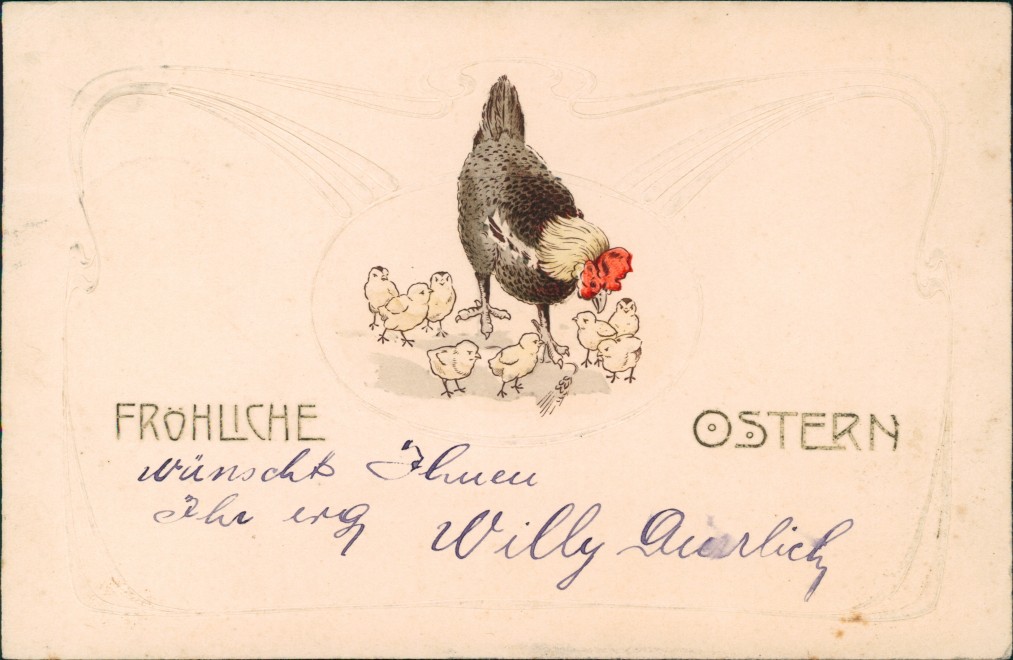 FRÖHLICHE OSTERN
wünscht Ihnen
Ihr erg Willy